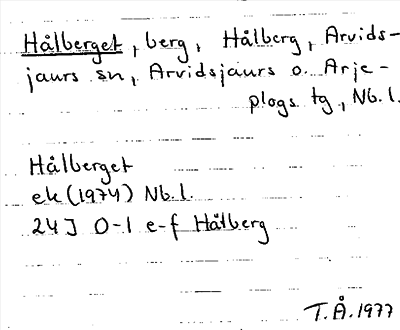 Hålberget, berg, Hålberg, Arvids-
jaurs sn, Arvidsjaurs o. Arje-
plogs tg, Nb.l.
Hålberget
ek (1974) Nb.l.
24J 0-1 e-f Hålberg
T.Å. 1977